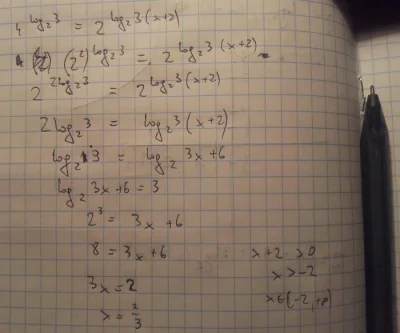 4^log₂3 = 2^log₂3(x+2)
(2²)^log₂3 = 2^log₂3(x+2)
2^2log₂3 = 2^log₂3(x+2)
2log₂3 = log₂3(x+2)
log₂ 3 = log₂ 3x+6
log₂ 3x+6 = 3
2³ = 3x+6
8 = 3x+6
3x = 2
x = 2/3
x+2 > 0
x > -2
x∈(-2,+∞)